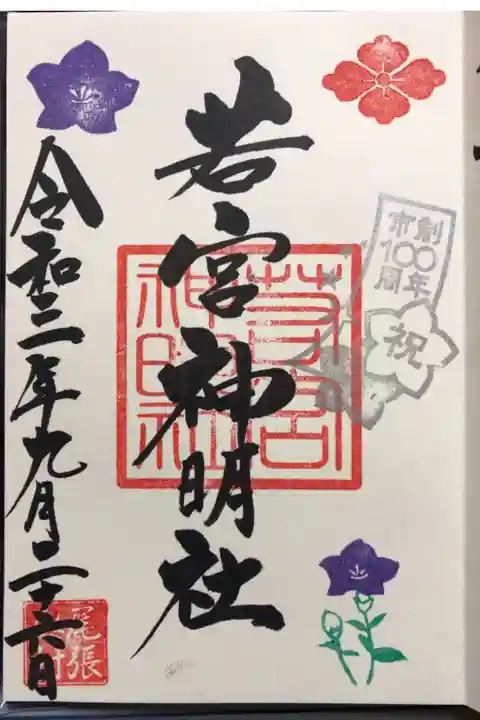 若宮神明社
令和三年九月二十六日
市創
100
周年
祝
若宮
神明社
尾張